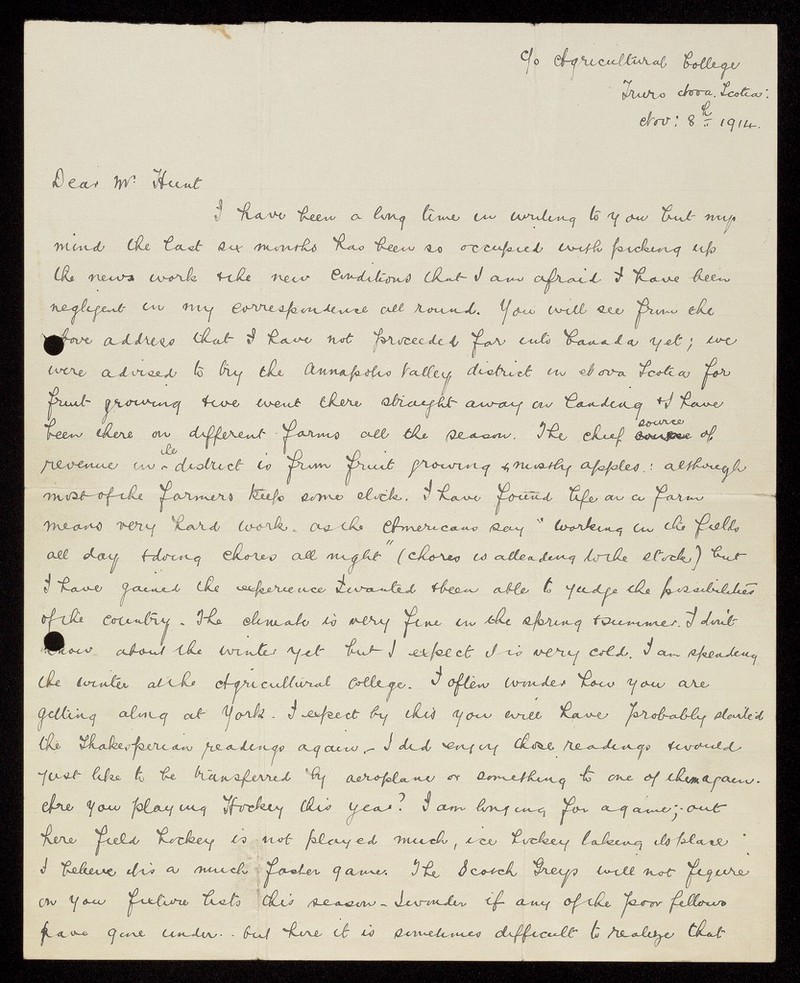 c/o Agricultural College
Truro Nova. Scotia:
Nov: 8th 1914.
Dear Mr. Hunt
I have been a long time in writing to you but my
mind the last six months has been so occupied with picking up
the news work & the new conditions that I am afraid I have been
negligent in my correspondence all round. You will see from the
above address that I have not proceeded far into Canada yet; we
were advised to try the Annapolis Valley district in Nova Scotia for
fruit growing & we went there straight away on landing & I have
been there on different farms all the season. The chief source of
revenue in the district is from fruit growing & mostly apples.: although
most of the farmers keep some stock. I have found life on a farm
means very hard work. as the Americans say "working in the fields
all day & doing chores all night" (chores is attending to the stock) but
I have gained the experience I wanted & been able to judge the possibilities
of the country. The climate is very fine in the spring & summer. I don't
know about the winter yet but I expect it is very cold. I am spending
the winter at the Agricultural College. I often wonder how you are
getting along at York. I expect by this you will have probably started
the Shakesperian readings again,- I did enjoy those readings & would
just like to be transferred by aeroplane or something to one of them again.
Are you playing Hockey this year? I am longing for a game; out
here field hockey is not played much, ice hockey taking its place
I believe it is a much faster game. The Scotch Greys will not figure
on you fixture lists this season - I wonder if any of the poor fellows
have gone under.. but here it is sometimes difficult to realize that